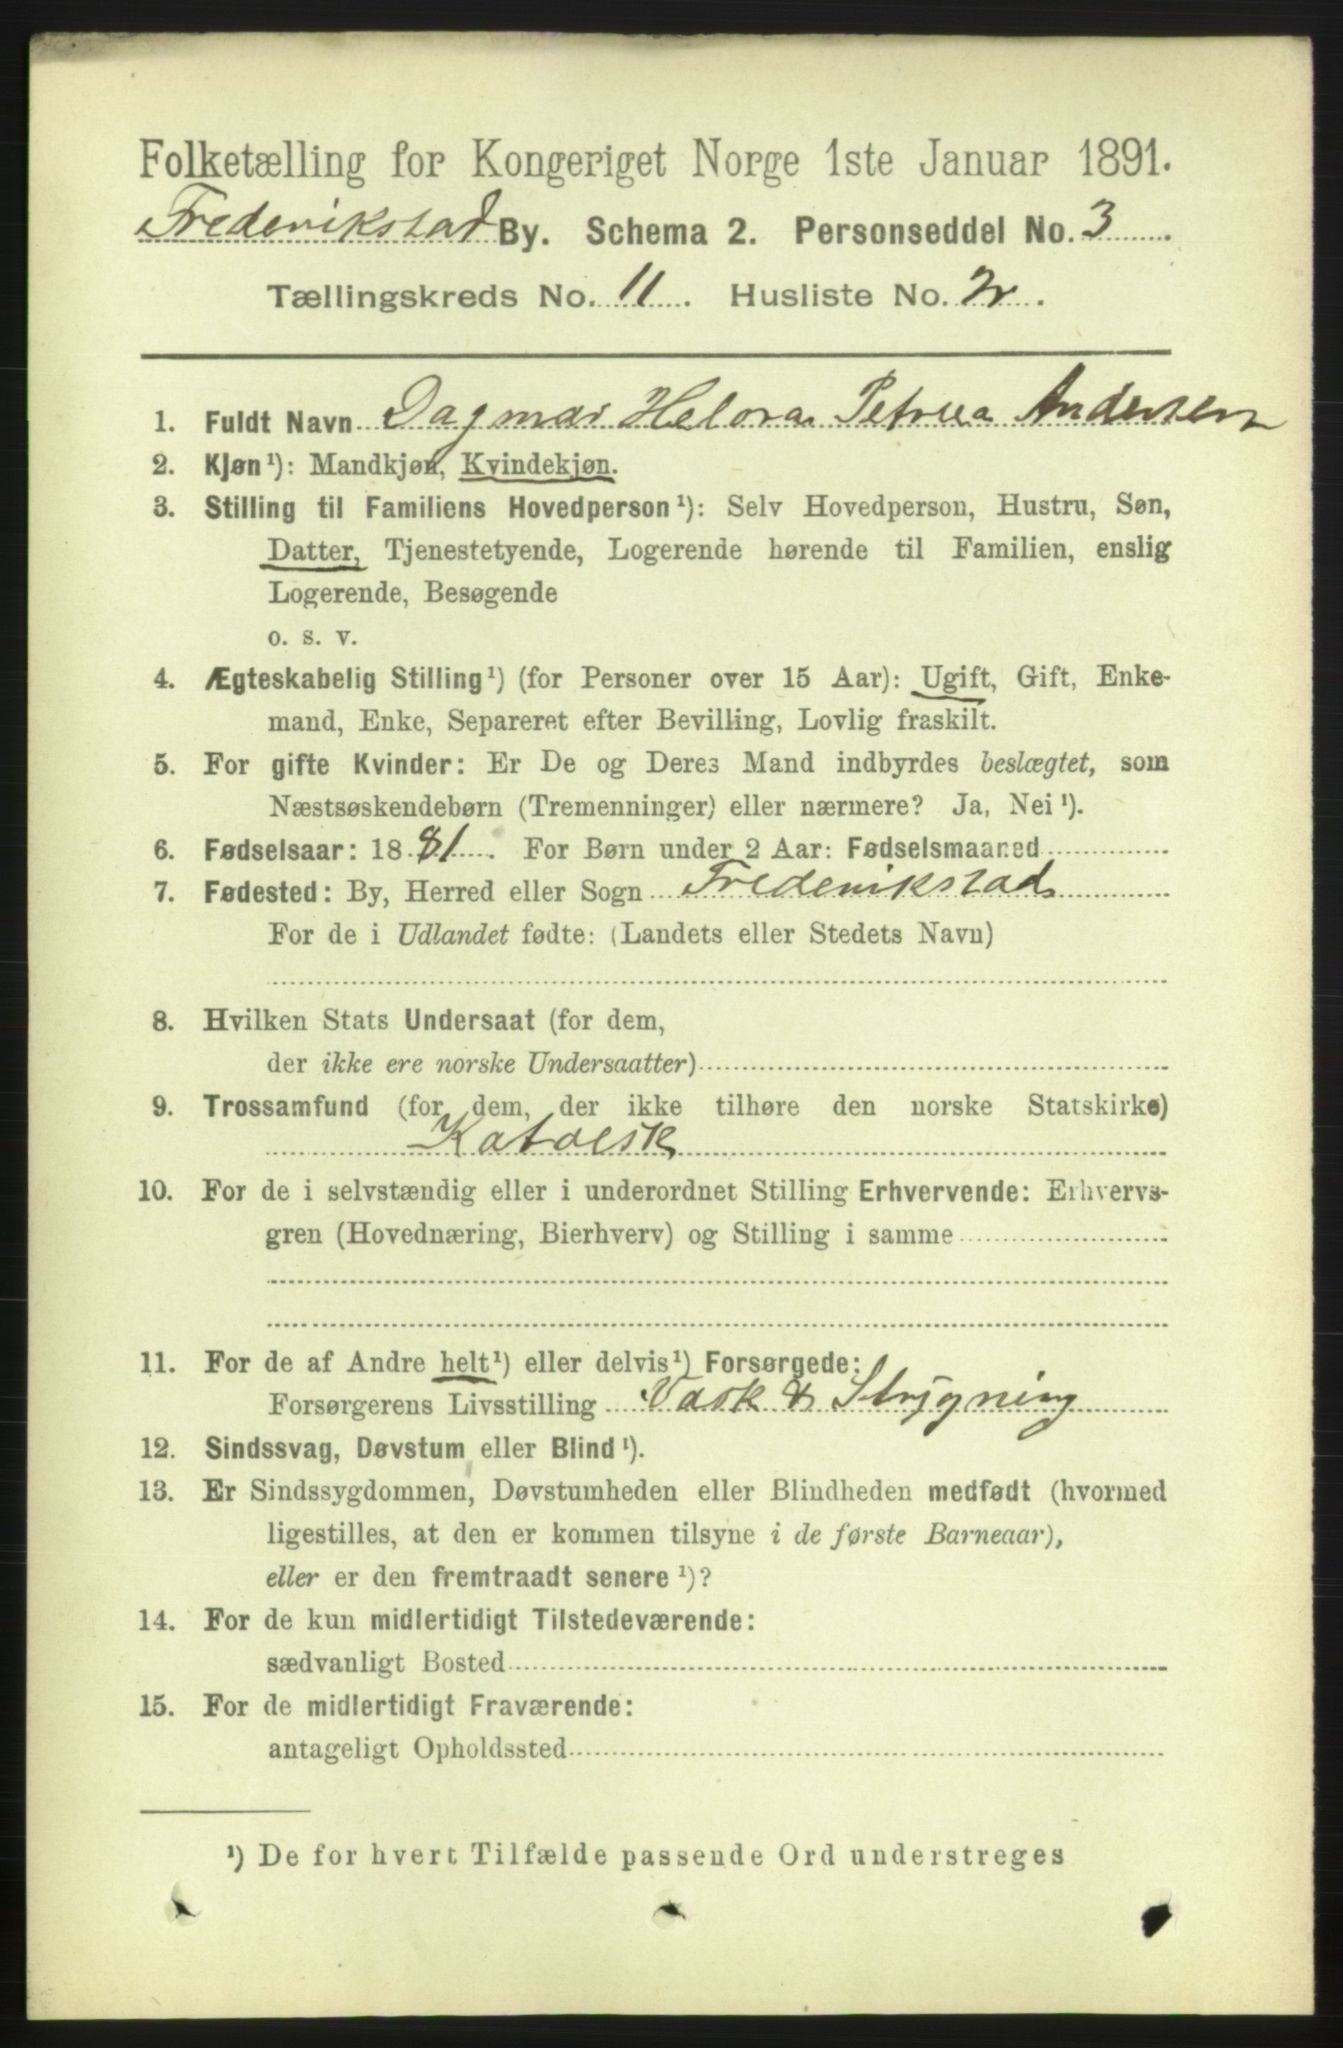 Folketælling for Kongeriget Norge 1ste Januar 1891.
Frederikstad By. Schema 2. Personseddel No. 3
Tællingskreds No. 11. Husliste No. 2.
1. Fuldt Navn Dagmar Helora Petrea Andersen
2. Kjøn¹): Mandkjøn, Kvindekjøn.
3. Stilling til Familiens Hovedperson¹): Selv Hovedperson, Hustru, Søn,
Datter, Tjenestetyende, Logerende hørende til Familien, enslig
Logerende, Besøgende
o. s. v.
4. Ægteskabelig Stilling¹) (for Personer over 15 Aar): Ugift, Gift, Enke-
mand, Enke, Separeret efter Bevilling, Lovlig fraskilt.
5. For gifte Kvinder: Er De og Deres Mand indbyrdes beslægtet, som
Næstsøskendebørn (Tremenninger) eller nærmere? Ja, Nei¹).
6. Fødselsaar: 1881. For Børn under 2 Aar: Fødselsmaaned
7. Fødested: By, Herred eller Sogn Frederikstad
For de i Udlandet fødte: (Landets eller Stedets Navn)
8. Hvilken Stats Undersaat (for dem,
der ikke ere norske Undersaatter)
9. Trossamfund (for dem, der ikke tilhøre den norske Statskirke)
Katolsk
10. For de i selvstændig eller i underordnet Stilling Erhvervende: Erhvervs-
gren (Hovednæring, Bierhverv) og Stilling i samme
11. For de af Andre helt¹) eller delvis¹) Forsørgede:
Forsørgerens Livsstilling Vask & Strygning
12. Sindssvag, Døvstum eller Blind¹).
13. Er Sindssygdommen, Døvstumheden eller Blindheden medfødt (hvormed
ligestilles, at den er kommen tilsyne i de første Barneaar),
eller er den fremtraadt senere¹)?
14. For de kun midlertidigt Tilstedeværende:
sædvanligt Bosted
15. For de midlertidigt Fraværende:
antageligt Opholdssted
¹) De for hvert Tilfælde passende Ord understreges